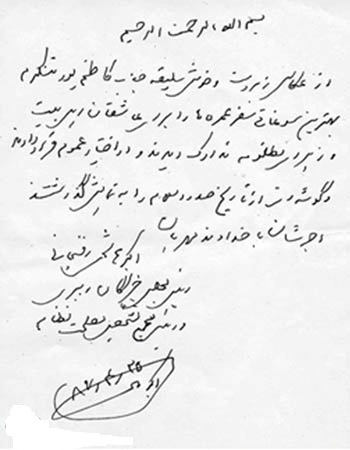 بسم الله الرحمن الرحیم
از عکاس زبردست و خوش سلیقه جناب کاظم پور متشکرم
بهترین سوغاتی سفر عمره را برای عاشقان اهل بیت
و زهرای مظلومه تدارک دیدند و در اختیار عموم قرار دادند
و گوشه ای از تاریخ صدر اسلام را به نمایش گذاشتند
اجرشان با خداوند مهربان
اکبر هاشمی رفسنجانی
رئیس مجلس خبرگان رهبری
و رئیس مجمع تشخیص مصلحت نظام